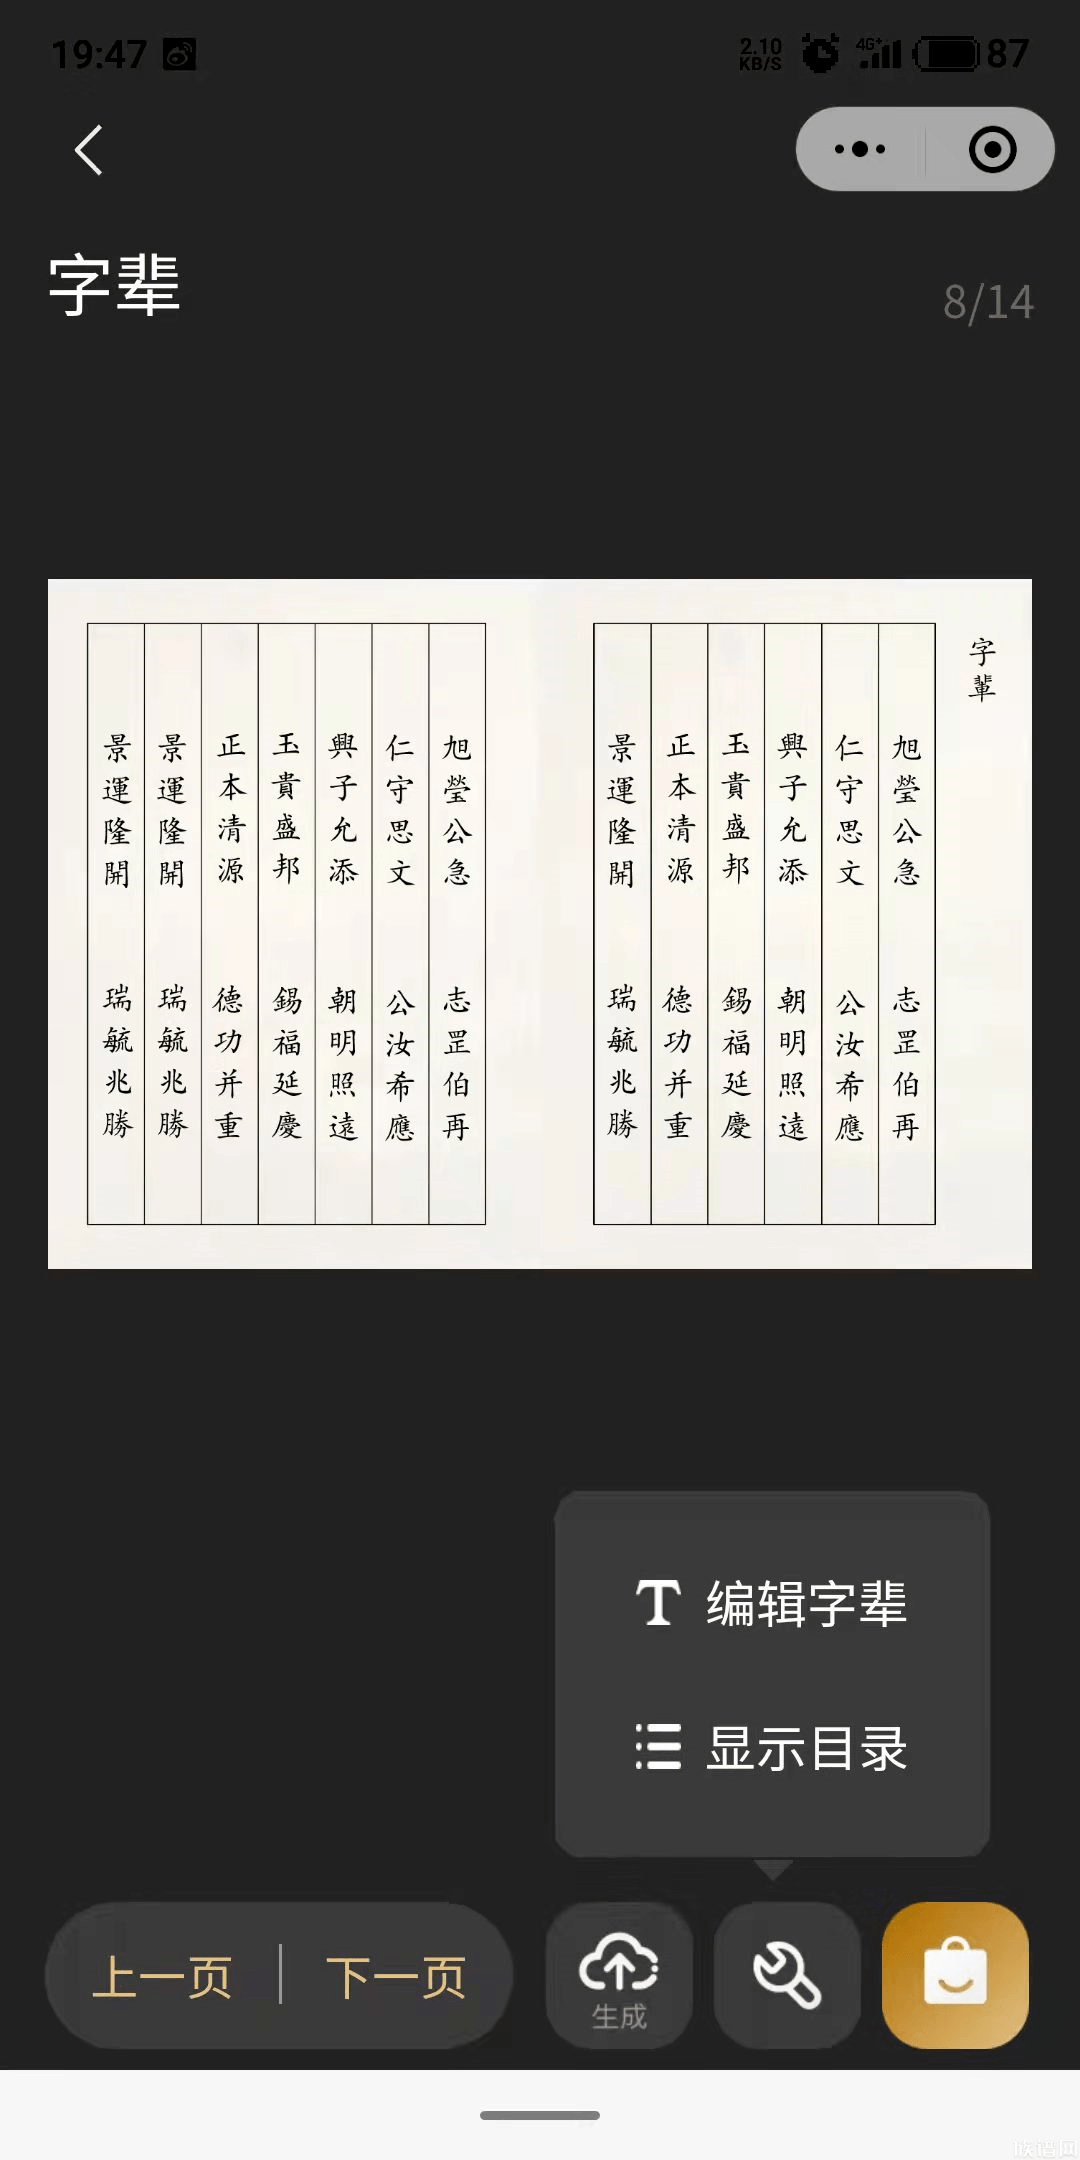 19:47
2.10 KB/S
4G+
87
字辈
8/14
字輩
旭瑩公急 志罡伯再
仁守思文 公汝希應
興子允添 朝明照遠
玉貴盛邦 錫福延慶
正本清源 德功并重
景運隆開 瑞毓兆勝
旭瑩公急 志罡伯再
仁守思文 公汝希應
興子允添 朝明照遠
玉貴盛邦 錫福延慶
正本清源 德功并重
景運隆開 瑞毓兆勝
景運隆開 瑞毓兆勝
T 编辑字辈
显示目录
上一页
下一页
生成
族谱网